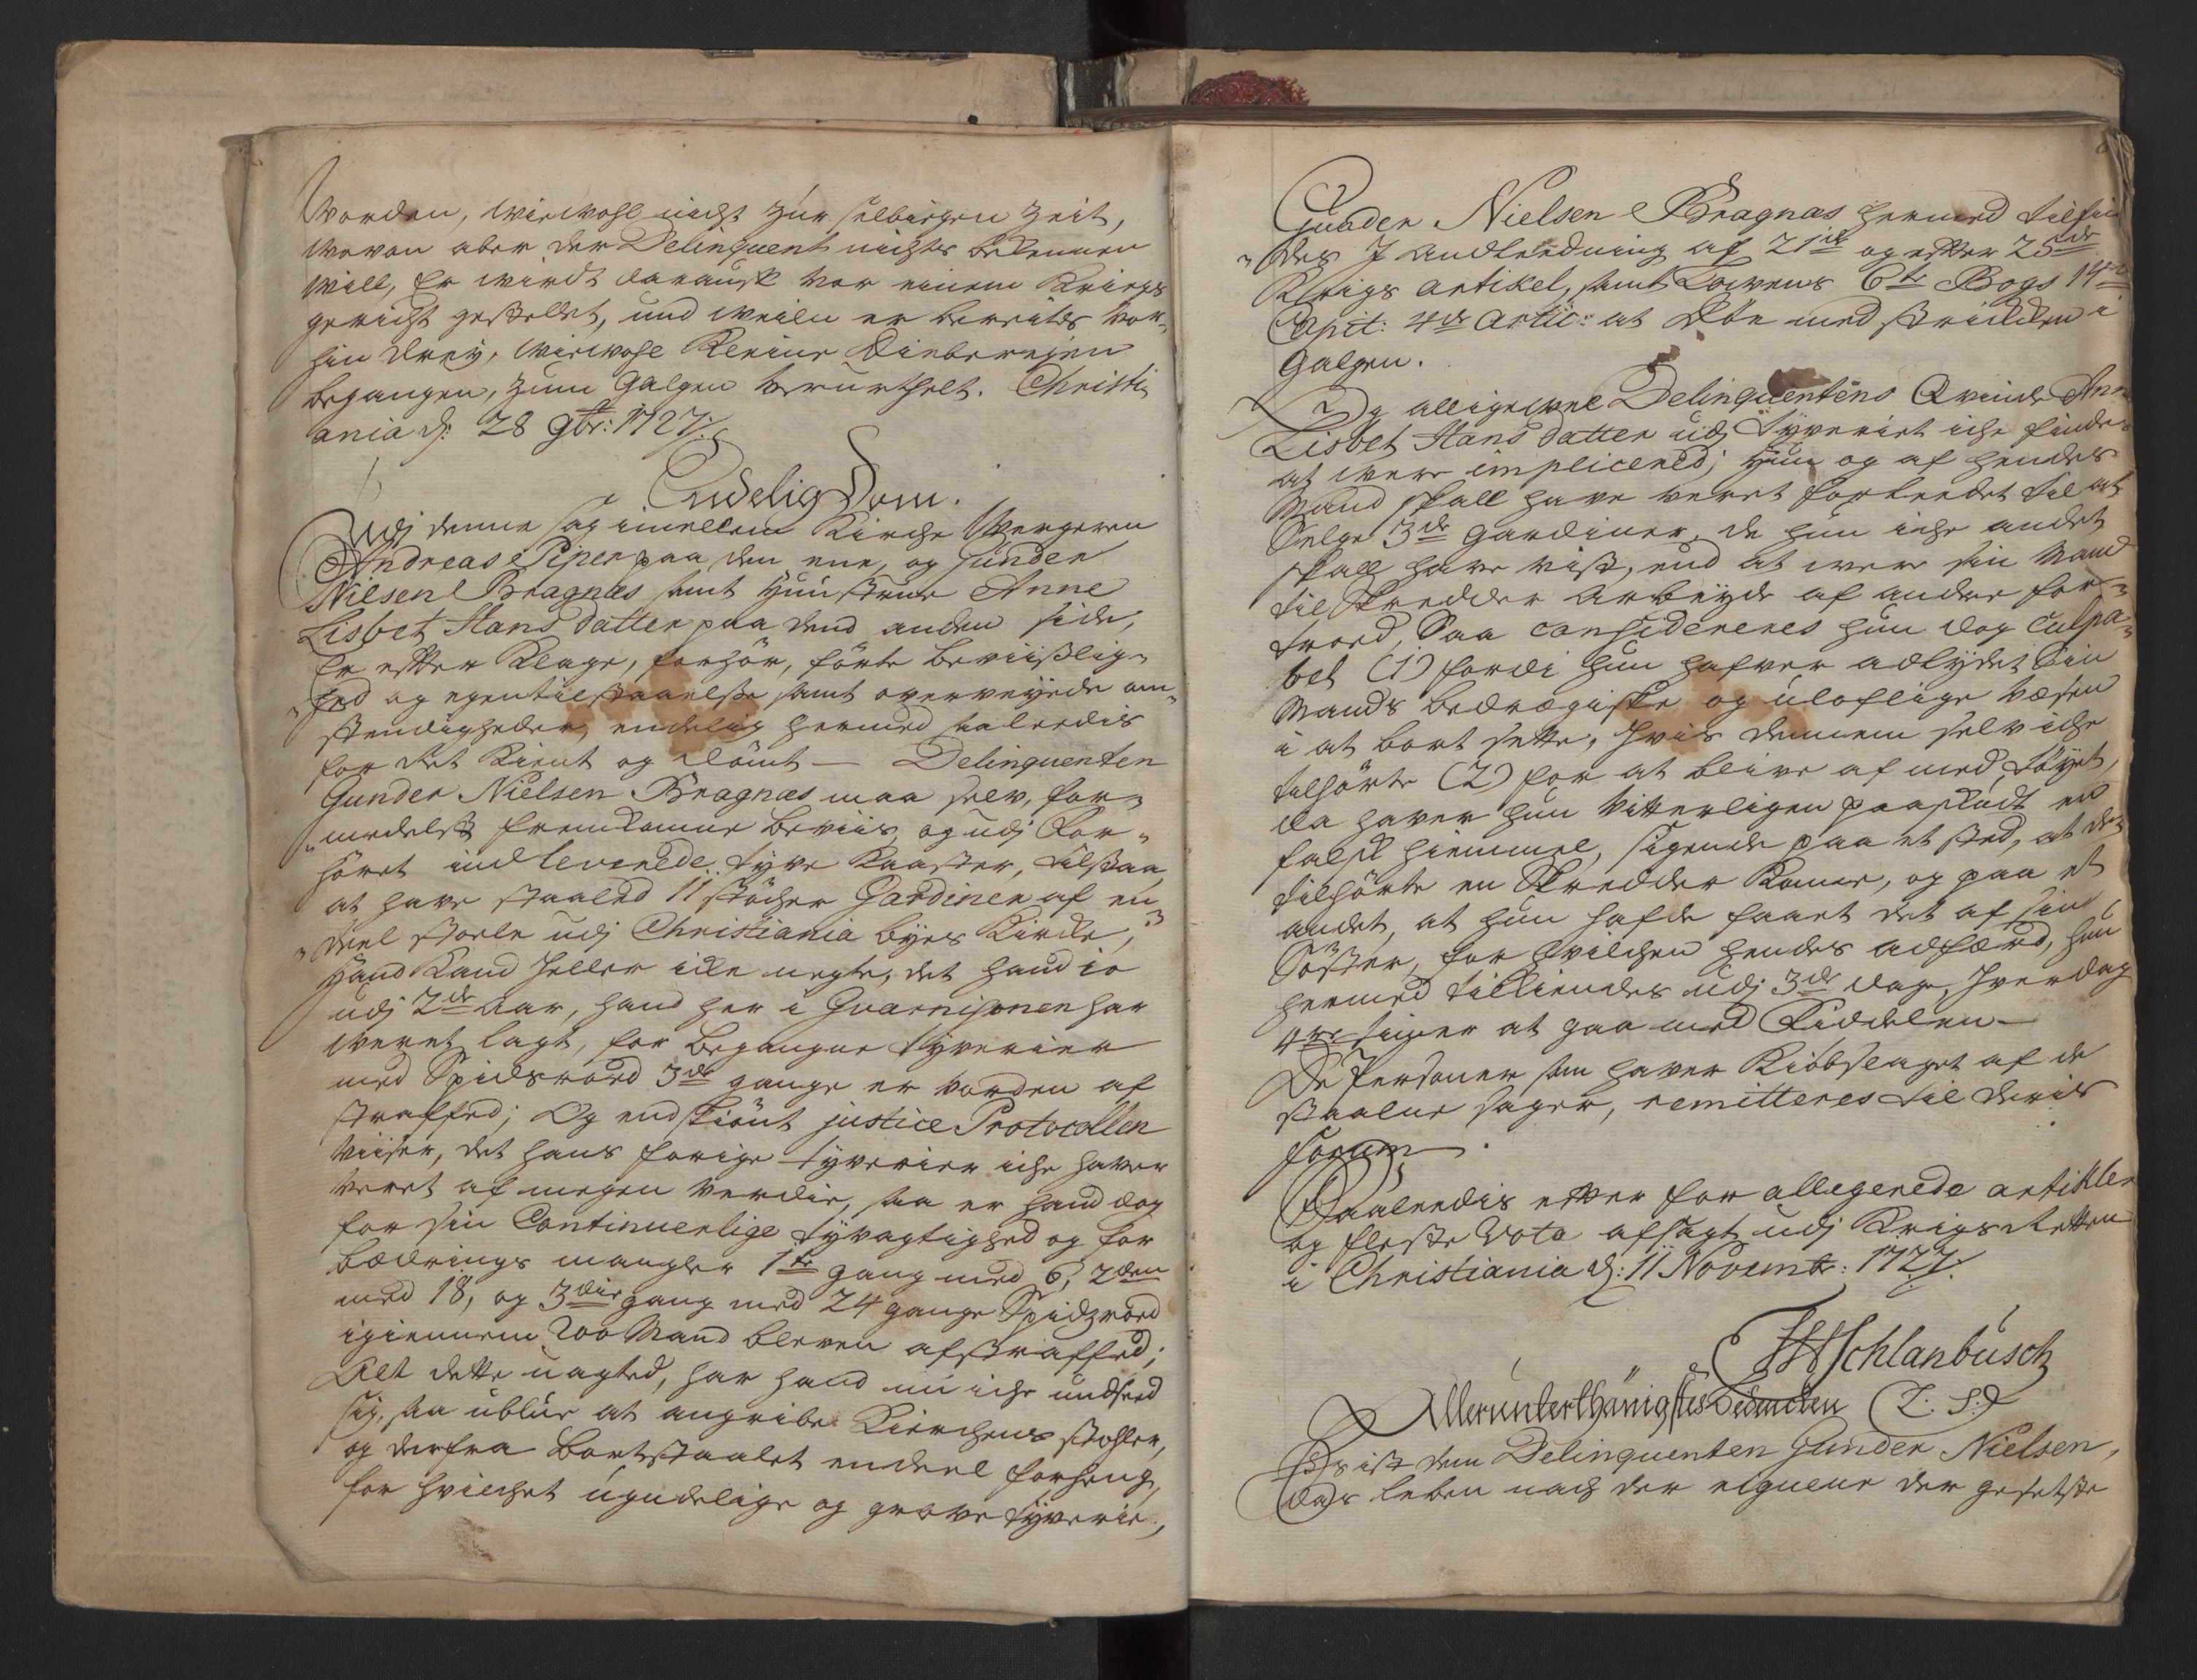 worden, wiewohl nicht zur selbiegen Zeit,
wovon aber der Delinquent nichts bekennen
will, Er wirdt darauff vor einem Kriegs
gericht gestellet, und weilen er bereits vor-
hin drey, wiewohl kleine Dieberejen
begangen, zum Galgen verurthelt. Christi
ania d: 28 9br: 1727.
Endelig Dom.
Udj denne sag imellem Kirche Wergeren
Andreas Piper paa den ene, og Gunder
Nielsen Bragnæs samt Hustrue Anne
Lisbet Hans datter paa dend anden side,
Er efter Klage, forhör, förte beviislig-
hed og egentilstaaelse samt overveyede om-
stendigheder, endelig hermed saaledis
for Ret Kient og dömt — Delinquenten
Gunder Nielsen Bragnæs maa selv, for-
medelst fremkomne beviis, og udj For-
höret ind leverede tyve Kaaster, tilstaa,
at have staaled 11 støcher Gardiner af en
deel stoele udj Christiania byes Kircke,
Hand Kand heller icke negte, det hand io
udj 2de Aar, hand her i Guarnisonen har
weret lagt, for begangne tyverier
med Spidsroed 3de gange er worden af
straffed; Og endskiönt justice Protocollen
viiser, det hans forige tyverier iche haver
veret af megen verdie, saa er hand dog
for sin Continuerlige tyvagtighed og for
bædrings mangler 1te gang med 6, 2den
med 18, og 3die gang med 24 gange Spidzroed
igiennem 200 Mand bleven afstraffed;
Alt dette uagted, har hand nu iche undseed
sig, saa ublue at angribe Kirchens stohler,
og derfra bortstaalet endeel forheng,
for hvilchet ugudelige og grove tyverie,
Gunder Nielsen Bragnæs hermed tilfin
des J Andleedning af 21de og efter 25de
Krigs artikel, samt Lowens 6te Bogs 14
Capit: 4de Artic: at Döe med strikken i
Galgen.
Og alligewel Delinquentens Qvinde Anne
Lisbet Hans datter udj Tyveriet iche finde
at were impliceret; hun og af hendes
Mand skall have veret forleedet til at
Selge 3de Gardiner, de hun iche andet
skall have vist, end at were sin Mand
til Skredder Arbeyde af andre for-
troed, Saa considereres hun dog culpa-
bel (1) fordi hun hafver adlydet sin
Mands bedrægiske og uloflige væsen
i at bort sette, hvis dennem selv iche
tilhörte (2) for at blive af med töyet,
da haver hun vitterligen paaskudt en
falsk hiemmel, sigende paa et sted, at det
tilhörte en Skredder Kone, og paa et
andet, at hun hafde faaet det af sin
Söster, for hvilchen hendes adfærd, hun
hermed tilkiendes udj 3de dage, hver dag
4re timer at gaa med Fiddelen —
De Personer som haver Kiöbslaget af de
staalne sager, remitteres til deris
forum.
Saaleedis efter for allegerede artikler
og fleste Vota afsagt udj Krigs Retten
i Christiania d: 11 Novembr: 1727.
HHSchlanbusch
Allerunterthänigstes Bedencken (L. S.)
Es ist dem Delinquenten Gunder Nielsen,
das leben nach der rigueur der gesetzte